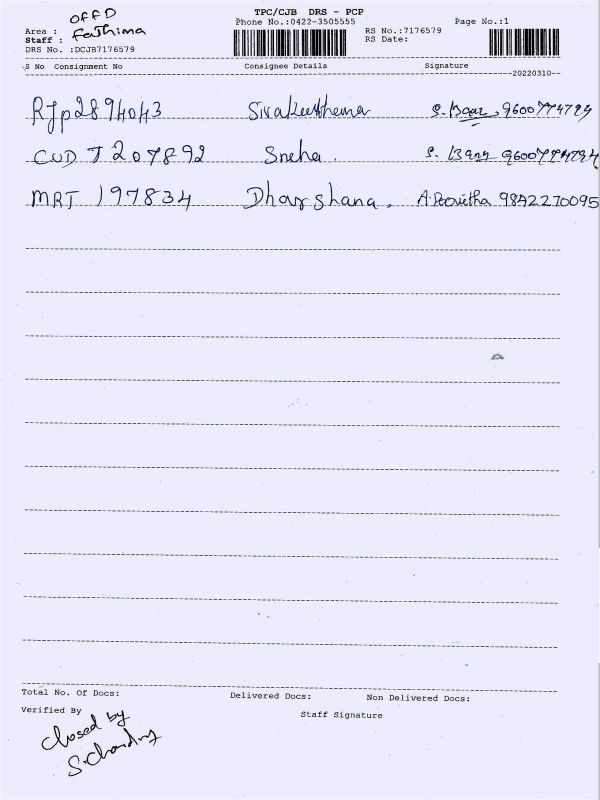 TPC/CJB DRS - PCP
OFFD
Phone No.:0422-3505555
Page No.:1
Area :
RS No.:7176579
Staff : Fathima
RS Date:
DRS No. :DCJB7176579
S No Consignment No Consignee Details Signature
20220310
RJp2894043 S. 9600774794
CUD J207892 Sneha. S. 9600774794
MRT 197834 Dharshana. 9842270095
Total No. Of Docs: Delivered Docs: Non Delivered Docs:
Verified By
Staff Signature
closed by